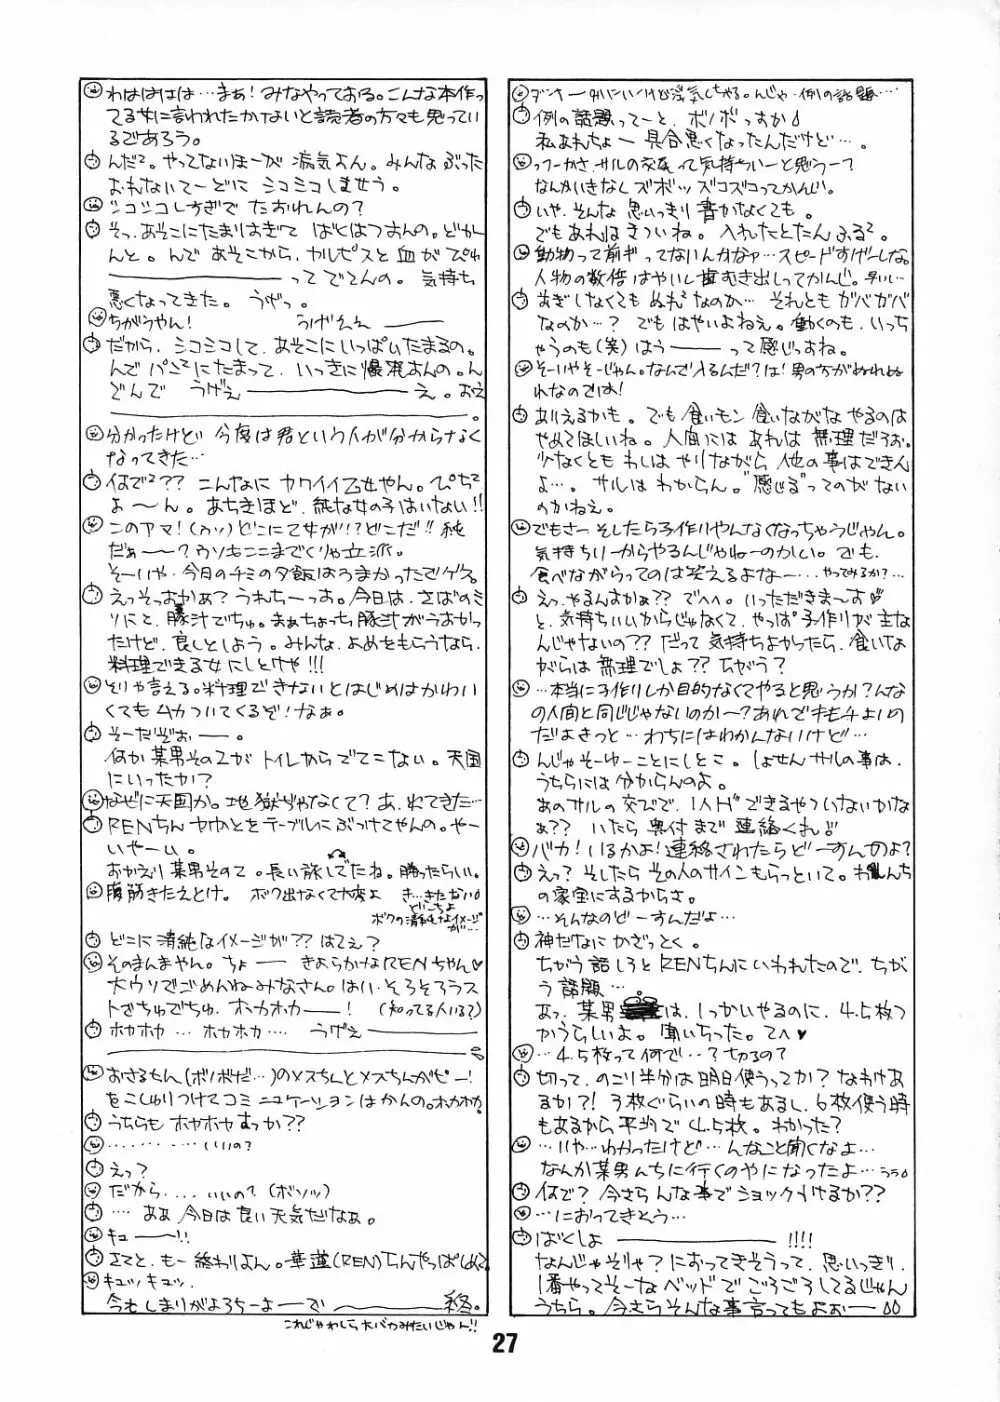 例の話題ってーと、ボノボっすか
私あれちょー具合悪くなったんだけど…。
つーかさ、サルの交尾って気持ちいーと思うー？
なんかいきなしズボッズコズコってかんじ。
いや、そんな思いっきり書かなくても。
でもあれはきついね。入れたとたんふる²。
動物って前ギってないんかなァ…スピードすげーしな。
人物の数倍はやいし歯むき出しってかんじ。早い…
あぎしなくてもぬれ²なのか…それともガバガバ
なのか…？でもはやいよねぇ。働くのも、いっち
ゃうのも(笑)はう―――って感じっすね。
そーいやそーじゃん。なんで入るんだ？は！男の方がぬれぬ
れなのでは！
ありえるかも。でも食いモン食いながらやるのは
やめてほしいね。人間にはあれは無理だろお。
少なくともわしはやりながら他の事はできん
よ…。サルはわからん。"感じる"ってのがない
のかねぇ。
でもさーそしたら子作りやんなくなっちゃうじゃん。
気持ちいーからやるんじゃねーのかい。でも、
食べながらってのは笑えるよなー…やってみるか？…
えっ、やるんすかぁ？？でへへ。いっただきまーす
と、気持ちいいからじゃなくて、やっぱ子作りが主な
んじゃないの？？だって気持ちよかったら、食いな
がらは無理でしょ？？ちがう？
…本当に子作りしか目的なくてやると思うか？んな
の人間と同じじゃないのか～？あれでキモチよいの
だよきっと…わちにはわかんないけど…
んじゃそーゆーことにしとこ。しょせんサルの事は、
うちらには分からんのよ。
あのサルの交びで、1人Hできるやついないかな
ぁ？？いたら奥付まで連絡くれ
バカ！いるかよ！連絡されたらどーすんのよ？
えっ？そしたらその人のサインもらっといて。わしんち
の家宝にするからさ。
…そんなのどーすんだよ…
神だなにかざっとく。
ちがう話しろとRENちんにいわれたので、ちが
う話題…
あっ、某男は、1っかいやるのに、4.5枚つ
かうらしいよ。聞いちった。てへ♥
…4.5枚って何で…？切るの？
切って、のこり半分は明日使うってか？なわけあ
るか？！3枚ぐらいの時もあるし、6枚使う時
もあるから平均で4.5枚。わかった？
…いや…わかったけど…んなこと聞くなよ…
なんか某男んちに行くのやになったよ…
何で？今さらんな事でショックうけるか？？
…におってきそう…
ばくしょ―――!!!!
なんじゃそりゃ？におってきそうって、思いっきり、
1番やってそーなベッドでごろごろしてるじゃん
うちら。今さらそんな事言ってもよぉ―
わはははは…まぁ！みなやっておる。こんな本作っ
てる女に言われたかねいと読者の方々も思ってい
るであろう。
んだ²。やってないほーが病気よん。みんなぶった
おれないてーどにシコシコしませう。
シコシコしすぎでたおれんの？
そっ、あそこにたまりすぎてばくはつすんの。どか
んと。んであそこから、カルピスと血がぴゅ
―――――ってでてんの。気持ち
悪くなってきた。うげっ。
ちがうやん！うげええ―――
だから、シコシコして、あそこにいっぱいたまるの。
んでパン²にたまって、いっきに爆発すんの。ん
どんでうげぇ――――え。おえ
―――――――。
分かったけど今度は君という人が分からなく
なってきた…
何で²？？こんなにカワイイ乙女やん。ぴち²
よ～ん。あちきほど、純な女の子はいない!!
このアマ！(ウソ)どこに乙女が!!?どこだ!!純
だぁ～？ウソもここまでくりゃ立派。
そーいや、今日のチミの夕飯はうまかったでゲス。
えっそっすかぁ？うれちーっす。今日は、さばのミ
ソにと、豚汁でちゅ。まぁちょっち豚汁がうすかっ
たけど、良しとしよう。みんな、よめをもらうなら、
料理できる女にしとけや!!!
そりゃ言える。料理できないとはじめはかわい
くてもムカついてくるぞ！なぁ。
そーだぞぉ―。
何か某男その2がトイレからでてこない。天国
にいったか？
なぜに天国か。地獄ぢゃなくて？あ、れてきた…
RENちんヤカンとをテーブルにぶつけてやんの。や～
いや～い。
おかえり某男その2。長い旅してたね。腹ったらしい。
腹筋きたえとけ。ボク出なくて大変よき…きたない。
どこちよ
ボクの清純なイメージ
が…
どこに清純なイメージが？？はてぇ？
そのまんまやん。ちょ―きよらかなRENちゃん♥
大ウソでごめんねみなさん。はい、そろそろラス
トでちゅでちゅ。ホカホカ―！(知ってる人いる？)
ホカホカ…ホカホカ…うげぇ―――
―――――――
おさるちん(ボノボだ…)のメスちんとメスちんがピー！
をこしゅりつけてコミュニケーションはかんの。ホカホカ
うちらもホカホカすっか？？
………いいの？
えっ？
だから、…いいの？(ボソッ)
…ああ今日は良い天気だなぁ。
キュ――!!
さてと、もー終わりよん。華蓮(REN)ちんやっぱしめて
キュッキュッ。
今もしまりがよろちーよ―で―――終。
これじゃわしら大バカみたいじゃん!!
27